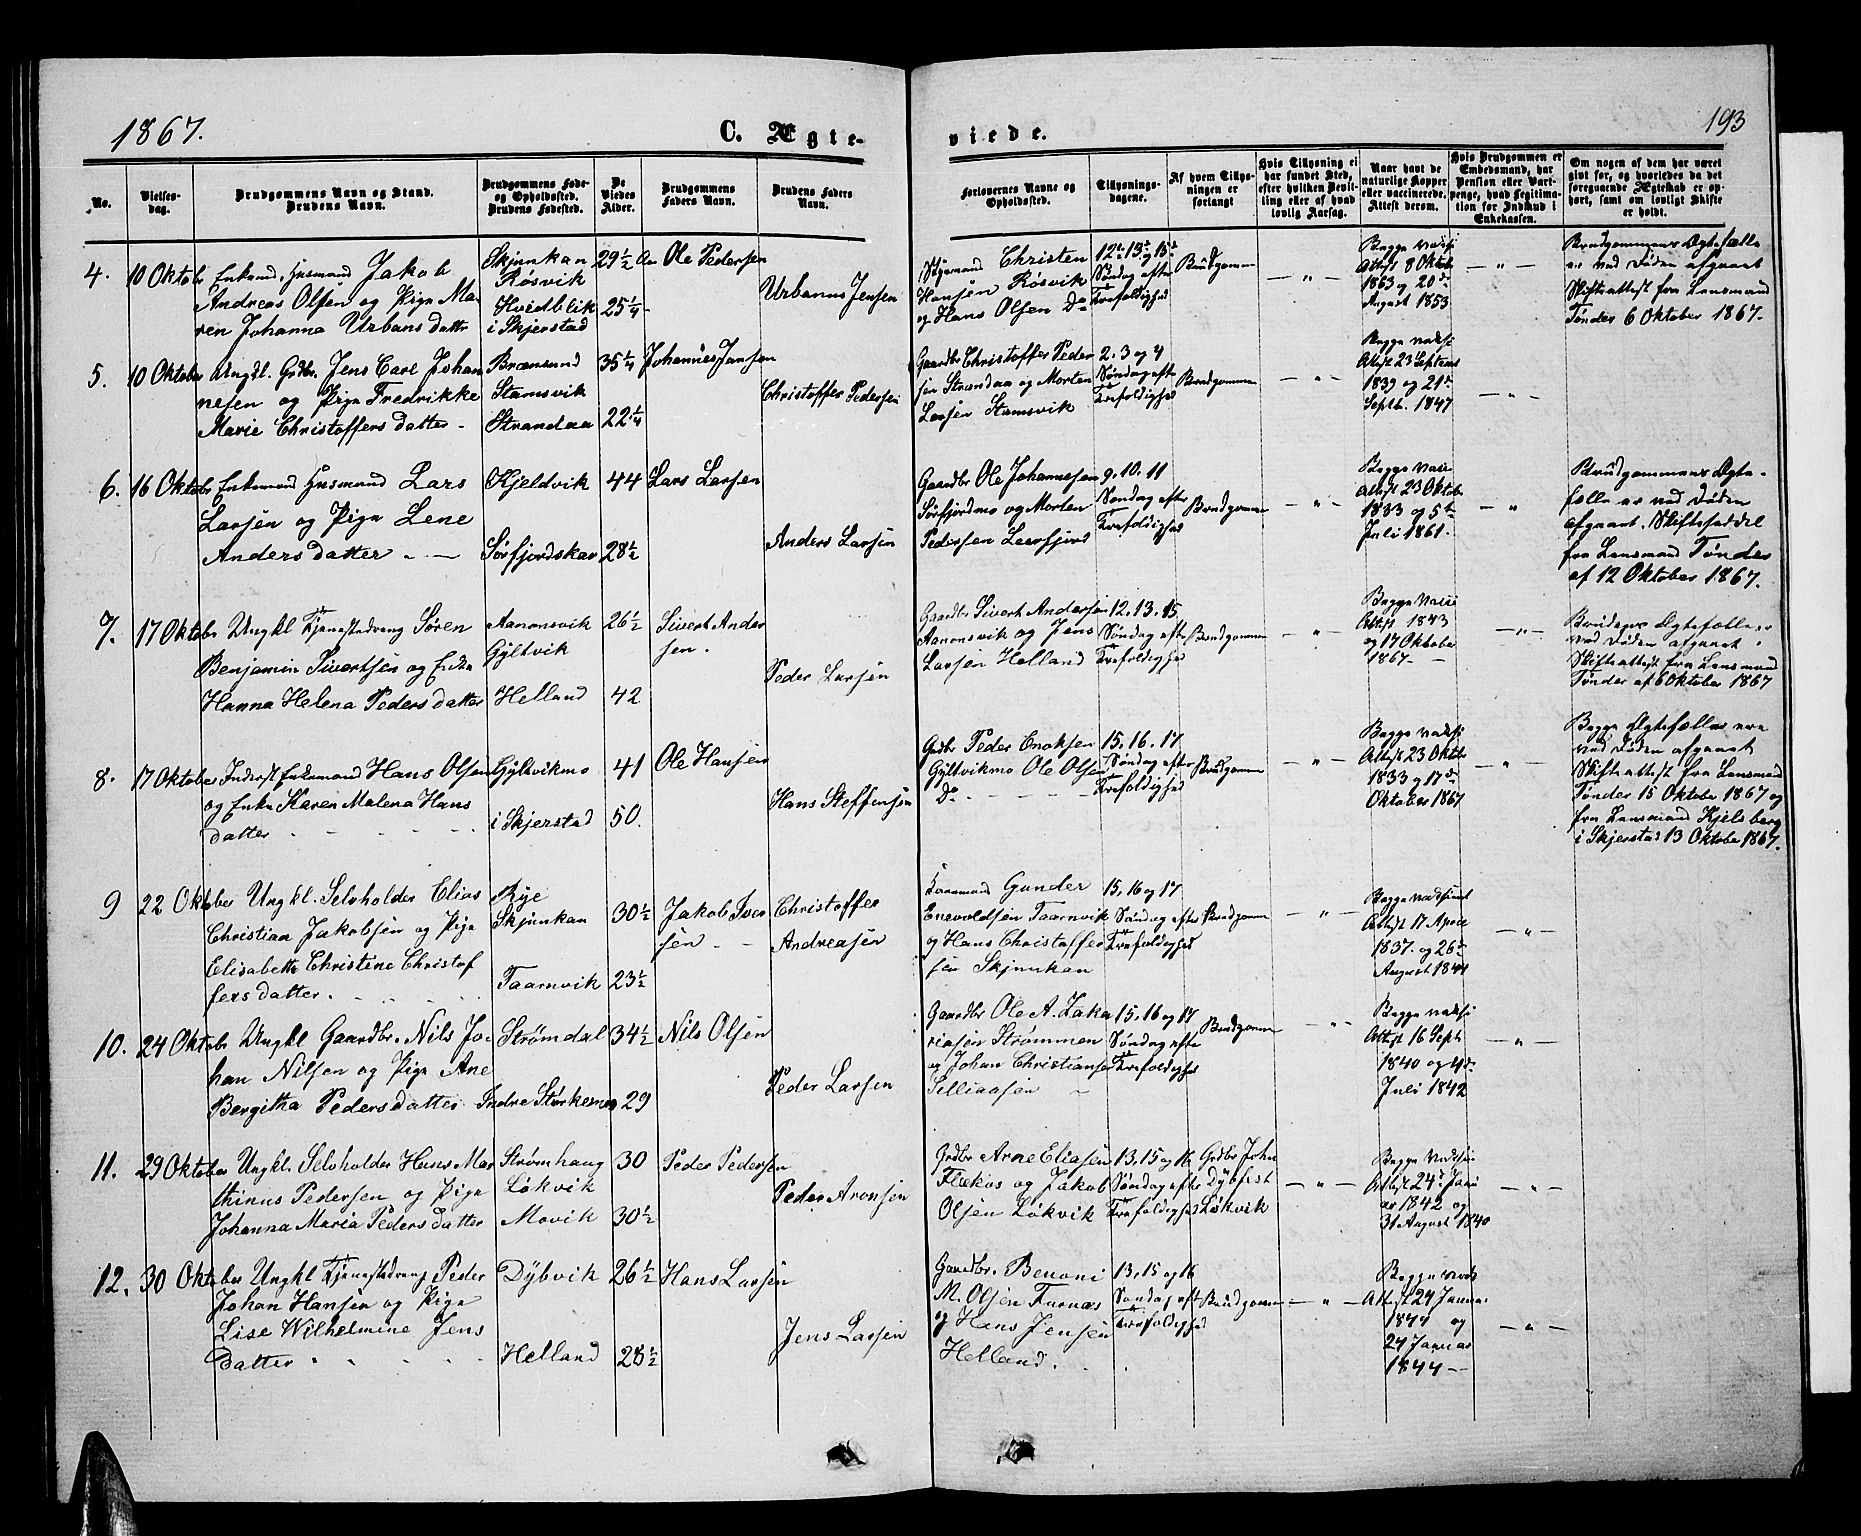 1867.
C. Ægte-
viede.
193
No.
Vielses-
dag.
Brudgommens Navn og Stand.
Brudens Navn.
Brudgommens Føde-
og Opholdssted.
Brudens Fødested.
De
Viedes
Alder.
Brudgommens
Faders Navn.
Brudens Faders
Navn.
Forlovernes Navne og
Opholdssted.
Tillysnings-
dagene.
Af hvem Tillys-
ningen er
forlangt
Hvis Tillysning ei
har fundet Sted,
efter hvilken Bevil-
ling eller af hvad
lovlig Aarsag.
Naar havt de
naturlige Kopper
eller vaccinerede.
Attest derom.
Hvis Brudgommen er
Embedsmand, har
Pension eller Vart-
penge, hvad Legitima-
tion for Indskud i
Enkekassen.
Om nogen af dem har været
gift før, og hvorledes da det
foregaaende Ægteskab er op-
hørt, samt om lovligt Skifte
er holdt.
4. 10 Oktobr Enkemd. Husmand Jakob
Andreas Olsen og Pige Ma-
ren Johanna Urbans datter
Skjunkan
Røsvik
Hvidblik
i Skjerstad
29½
25¼
Ole Pedersen
Urbanus Jensen
Christen
Hansen Røsvik
og Hans Olsen Do
12te 13de 15de
Søndag efter
Trefoldighed
Brudgommen
Begge vacsi
Attest 8 Oktobr
1863 og 20de
August 1853
Brudgommens Ægtefælle
er ved Døden afgaaet
Skifteattest fra Lensmand
Tønder 6 Oktober 1867.
5. 10 Oktober Ungkl. Grdbr. Jens Carl Johan
nesen og Pige Fredrikke
Marie Christoffers datter
Brænsund
Stamsvik
Strandaa
35¼
22¼
Johannes Jansen
Christoffer Pedersen
Gaardbr Christoffer Peder
sen Strandaa og Morten
Larsen Stamsvik
2. 3 og 4
Søndag efter
Trefoldighed
Brudgommen
Begge vacsi
Attest 23 Septem
1839 og 21de
Septb. 1847
6. 16 Oktobr Enkemand Husmand Lars
Larsen og Pige Lene
Anders datter
Kjeldvik
Sørfjordskar
44
28½
Lars Larsen
Anders Larsen
Gaardbr Ole Johannesen
Sørfjordmo og Morten
Pedersen Leerfjord
9. 10. 11
Søndag efter
Trefoldighed
Brudgommen
Begge vacsi
Attest 23 Oktobr
1833 og 5te
Juli 1861.
Brudgommens Ægte-
fælle er ved Døden
afgaaet. Skifteseddel
fra Lensmand Tønder
af 12 Oktober 1867.
7. 17 Oktobr Ungkl Tjenestedreng Søren
Benjamin Sivertsen og Enke
Hanna Helena Peders datter
Aanonsvik
Gyltvik
Helland
26½
42
Sivert Ander
sen.
Peder Larsen
Gaardbr Sivert Andersen
Aanonsvik og Jens
Larsen Helland
12. 13. 15
Søndag efter
Trefoldighed
Brudgommen
Begge vacsi
Attest 1843
og 17 Oktober
1867
Brudens Ægtefælle er
ved Døden afgaaet
Skifteattest fra Lensmand
Tønder af 6 Oktober 1867
8. 17 Oktober Inderst Enkemand Hans Olsen
og Enke Karen Malena Hans
datter
Gyltvikmo
i Skjerstad
41
50.
Ole Hansen
Hans Steffensen
Grdbr Peder Enoksen
Gyltvikmo Ole Olsen
Do
15. 16. 17
Søndag efter
Trefoldighed
Brudgommen
Begge vacsi
Attest 23 Oktbr
1833 og 17de
Oktober 1867
Begge Ægtefæller ere
ved Døden afgaaet
Skifteattest fra Lensmand
Tønder 15 Oktober 1867 og
fra Lensmand Kjelsberg
i Skjerstad 13 Oktober 1867.
9 22 Oktober Ungkl. Selvholder Elias
Christian Jakobsen og Pige
Elisabeth Christine Christof
fers datter.
Rye
Skjunkan
Taarnvik
30½
23½
Jakob Iver
sen
Christoffer
Andreasen
Gunder
Enevoldsen Taarnvik
og Hans Christoffer
sen Skjunkan
15, 16 og 17
Søndag efter
Trefoldighed
Brudgommen
Begge
Attest 17 April
1837. og 26de
August 1844
10. 24 Oktobr Ungkl Gaardbr. Nils Jo-
han Nilsen og Pige Ane
Bergitha Peders datter
Strømdal
Indre Størkersen
34½
29
Nils Olsen
Peder Larsen
Gaardbr Ole A. Zaka
riasen Strømmen
og Johan Christiansen
Selliaasen
15, 16 og 17
Søndag efter
Trefoldighed
Brudgommen
Begge vacsi
Attest 16 Sept
1840 og 4de
Juli 1842
11. 29 Oktober Ungkl. Selvholder Hans Mar
thinus Pedersen og Pige
Johanna Maria Peders datter
Strømhaug
Løkvik
Movik
30
30½
Peder Pedersen
Peder Aronsen
Grdbr Arne Eliasen
Flakos og Jakob
Olsen Løkvik
13, 15 og 16
Søndag efter
Trefoldighed
Grdbr John
Dybfest
Løkvik
Begge vacsi
Attest 24de Janu
ar 1842 og
31 August 1840
12. 30 Oktober Ungkl Tjenestedreng Peder
Johan Hansen og Pige
Lise Wilhelmine Jens
datter
Dybvik
Helland
26½
28½
Hans Larsen
Jens Larsen
Gaardbr. Benoni
M. Olsen Furnæs
og Hans Jensen
Helland.
13, 15 og 16
Søndag eft
Trefoldighed
Brudgommen
Begge vacs
Attest 24 Januar
1844 og
24 Januar
1844